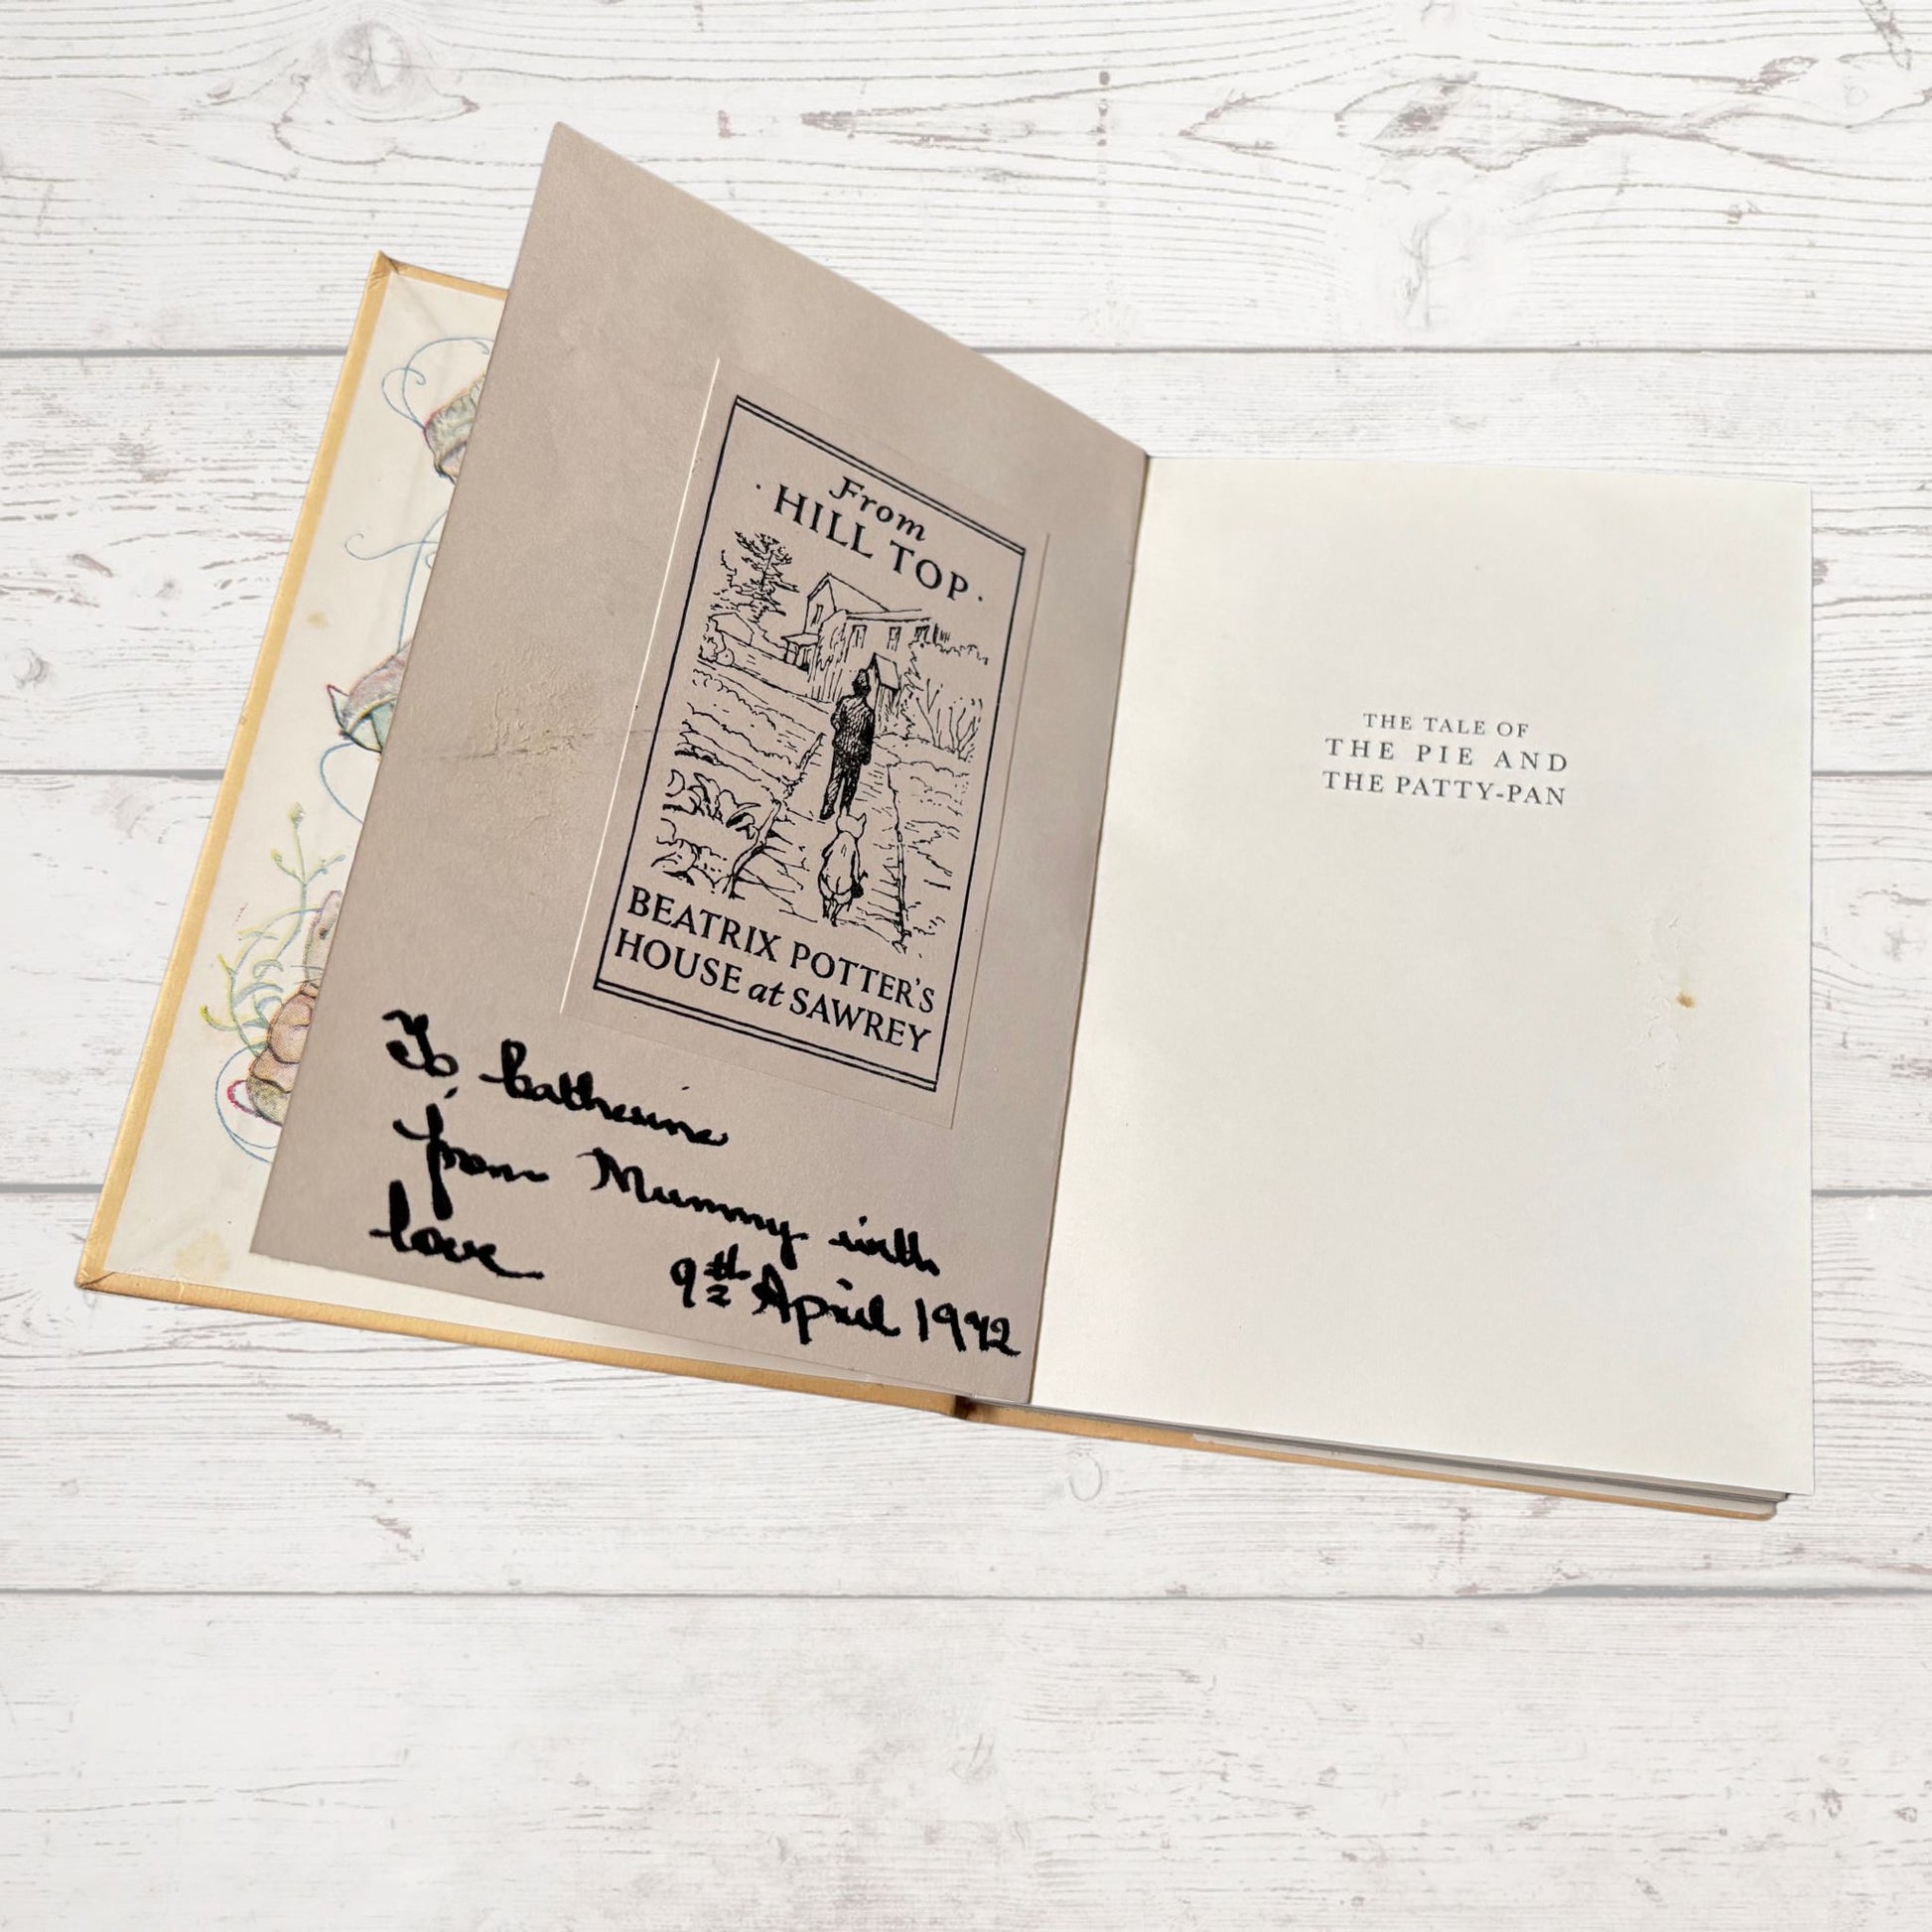 From
· HILL TOP ·
BEATRIX POTTER'S
HOUSE at SAWREY
To Catherine
from Mummy with
love
9th April
THE TALE OF
THE PIE AND
THE PATTY-PAN